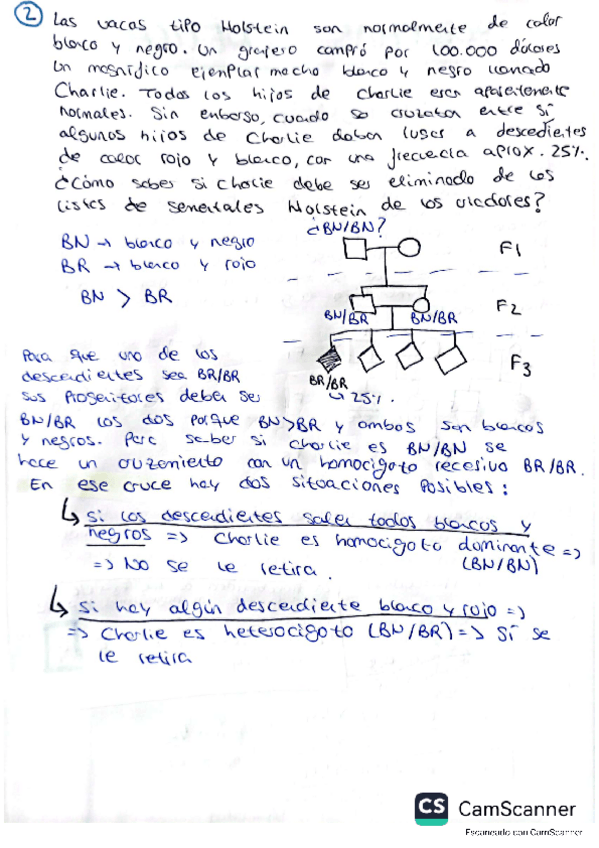 2 Las vacas tipo Holstein son normalmente de color
blanco y negro. Un granjero compró por 100.000 dólares
un magnífico ejemplar macho blanco y negro llamado
Charlie. Todos los hijos de Charlie eran aparentemente
normales. Sin embargo, cuando se cruzaban entre sí
algunos hijos de Charlie daban lugar a descedientes
de color rojo y blanco, con una frecuencia aprox. 25%.
¿Cómo saber si Charlie debe ser eliminado de las
listas de sementales Holstein de los criadores?
BN → blanco y negro
BR → blanco y rojo
BN > BR
¿BN/BN?
F1
BN/BR BN/BR
F2
F3
BR/BR
↳ 25%.
Para que uno de los
descendientes sea BR/BR
sus progenitores deben ser
BN/BR los dos porque BN>BR y ambos son blancos
y negros. Para saber si Charlie es BN/BN se
hace un cruzamiento con un homocigoto recesivo BR/BR.
En ese cruce hay dos situaciones posibles:
↳ si los descendientes salen todos blancos y
negros => Charlie es homocigoto dominante =>
(BN/BN)
=> No se le retira.
↳ si hay algún descendiente blanco y rojo =>
=> Charlie es heterocigoto (BN/BR) => Sí se
le retira
CS CamScanner
Escaneado con CamScanner